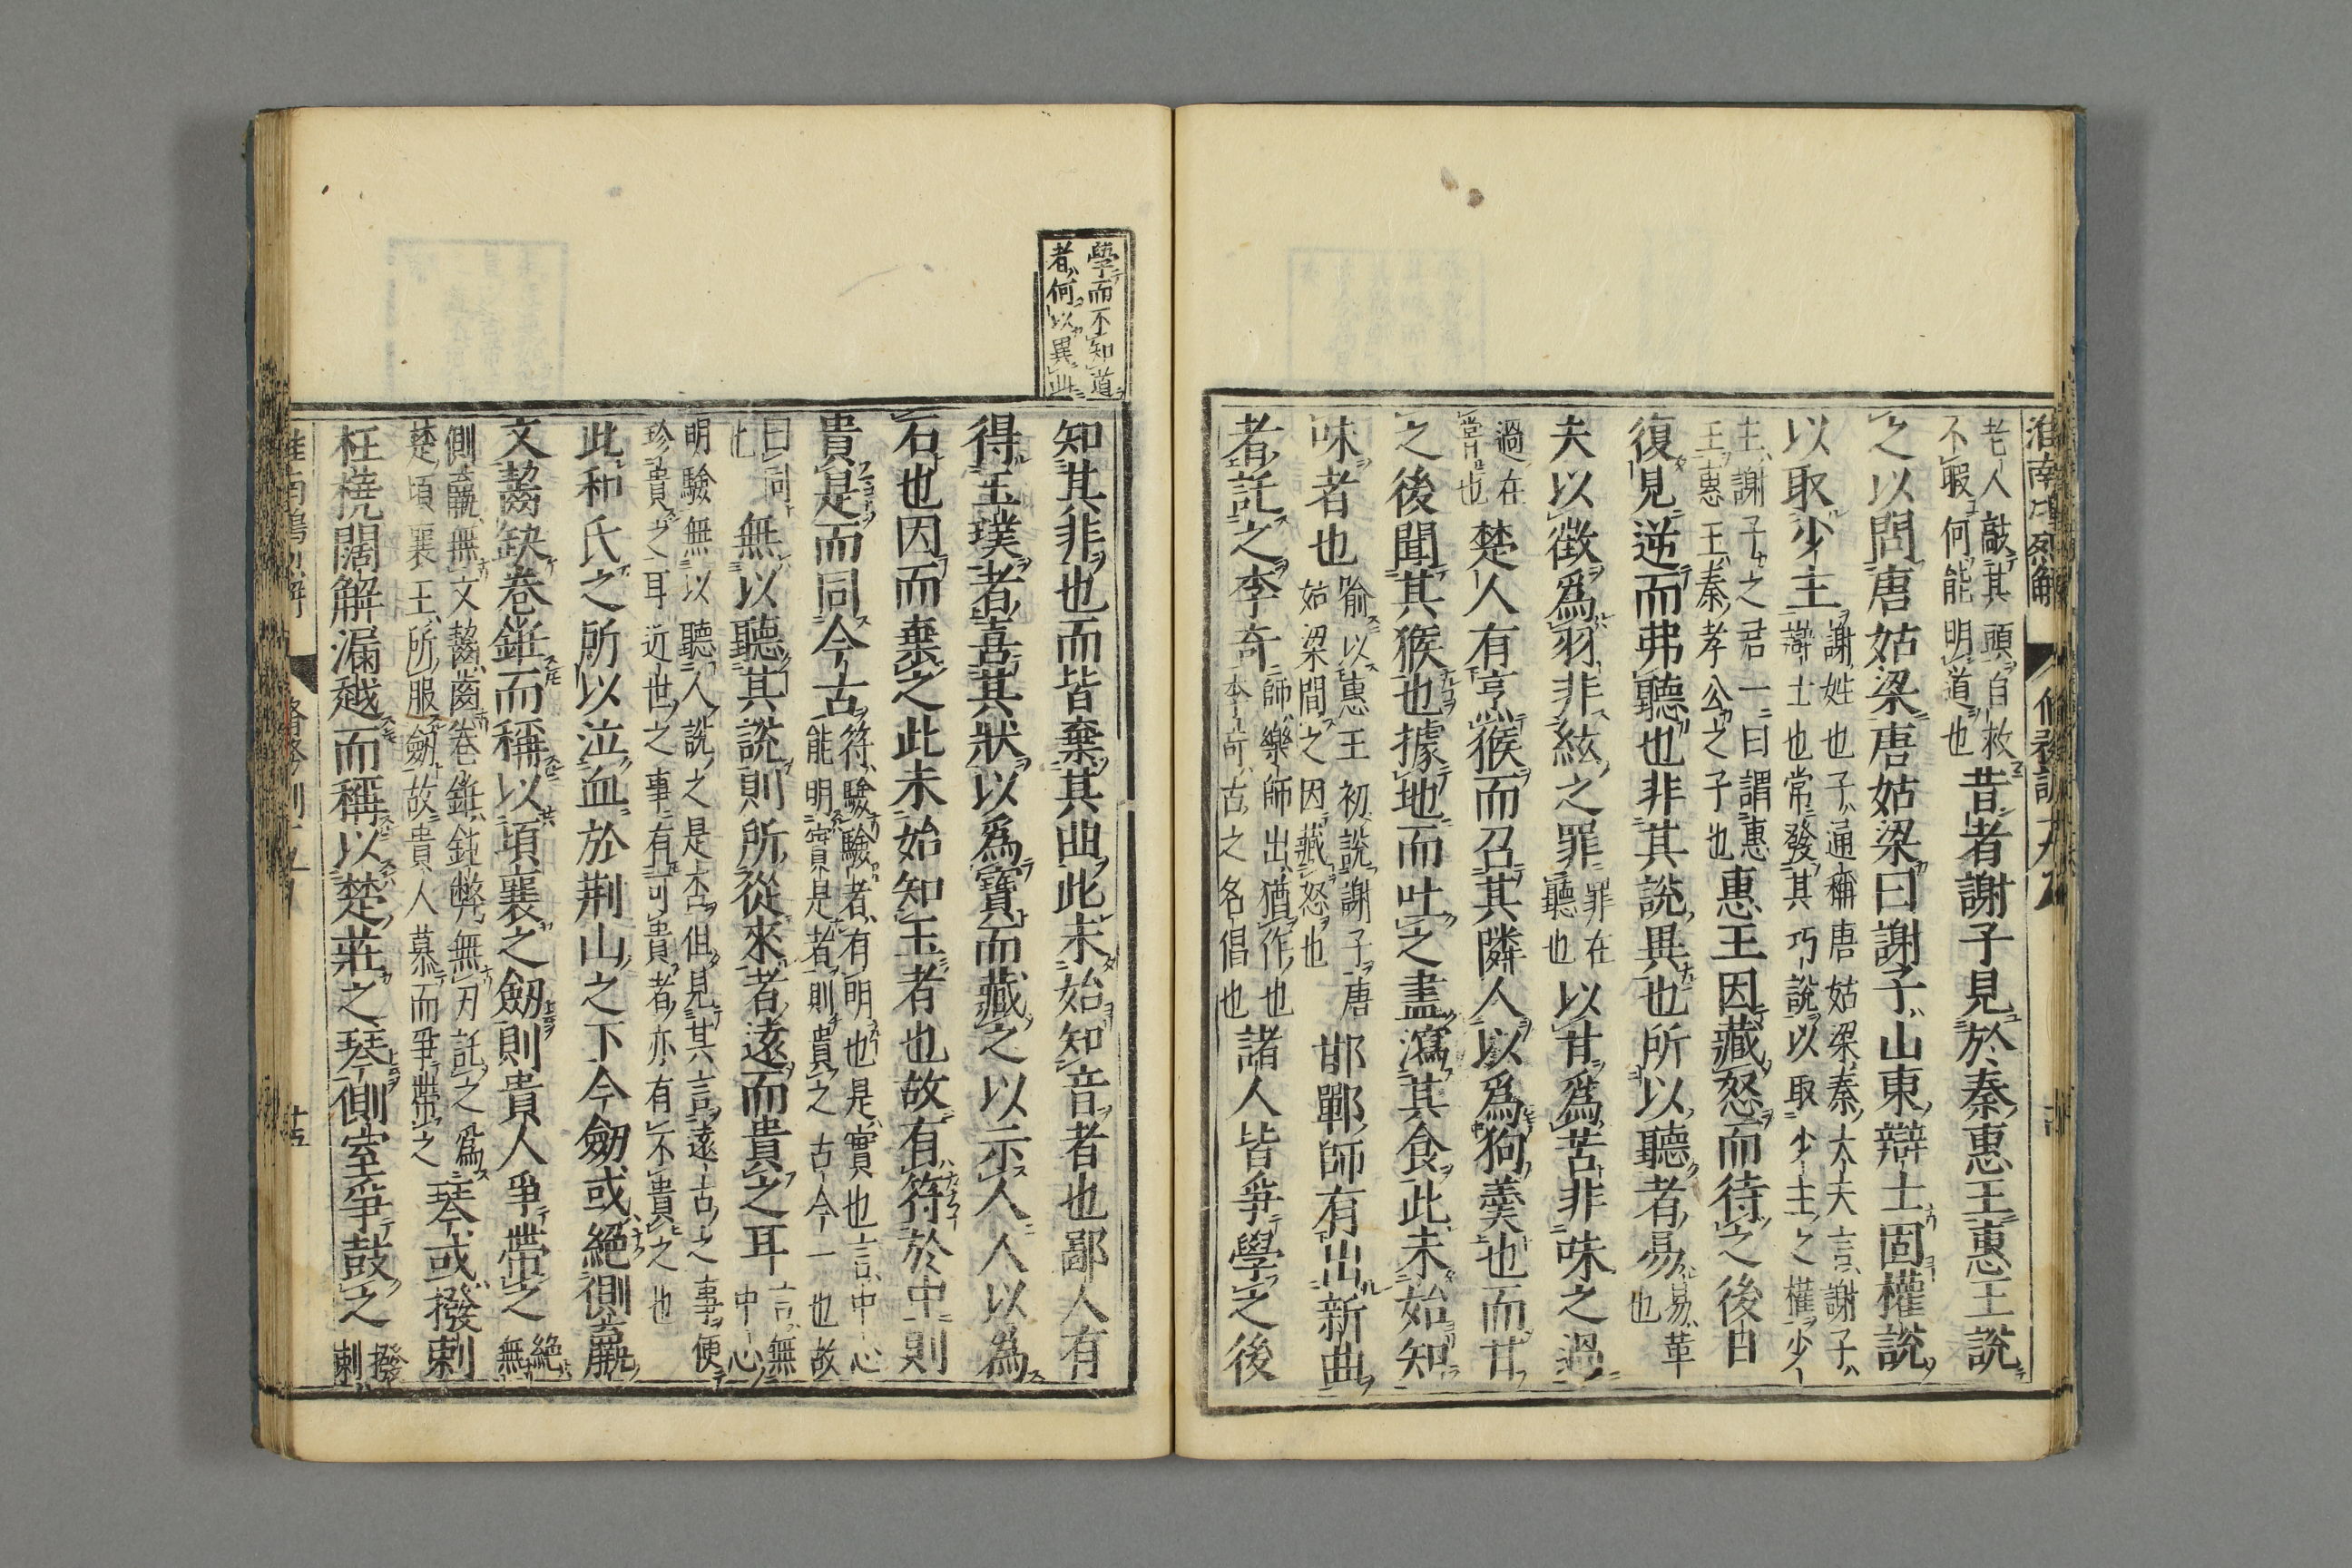 淮南鴻烈解 脩務訓十九
老人敲其頭自救
不暇何能明道也
昔者謝子見於秦惠王惠王說
之以問唐姑梁唐姑梁曰謝子山東辯士固權說
以取少主
謝姓也子通稱唐姑梁秦大夫言謝子
辯士也常發其巧說以取少主之權少
主謝子之君一曰謂惠
王惠王秦孝公之子也
惠王因藏怒而待之後日
復見逆而弗聽也非其說異也所以聽者易
易革
也
夫以徵爲羽非絃之罪
罪在
聽也
以甘爲苦非味之過
過在
嘗也
楚人有烹猴而召其隣人以爲狗羹也而甘
之後聞其猴也據地而吐之盡瀉其食此未始知
味者也
喻以惠王初說謝子唐
姑梁間之因藏怒也
邯鄲師有出新曲
者託之李奇
師樂師出猶作也
李奇古之名倡也
諸人皆爭學之後
學而不知道
者何以異此
知其非也而皆棄其曲此未始知音者也鄙人有
得玉璞者喜其狀以爲寶而藏之以示人人以爲
石也因而棄之此未始知玉者也故有符於中則
貴是而同今古
符驗驗者有明也是實也言中心
能明實是者則貴之古今一也故
曰同
此
無以聽其說則所從來者遠而貴之耳
言無
中心
明驗無以聽人說之是否但見其言遠古之事便
珍貴之耳近世之事有可貴者亦有不貴之也
此和氏之所以泣血於荆山之下今劒或絕側羸
文齧缺卷銋而稱以頃襄之劒則貴人爭帶之
絕
無
側羸無文齧齒卷銋鈍弊無刃託之爲
楚頃襄王所服劒故貴人慕而爭帶之
琴或撥剌
枉橈闊解漏越而稱以楚莊之琴側室爭鼓之
撥
剌
十五